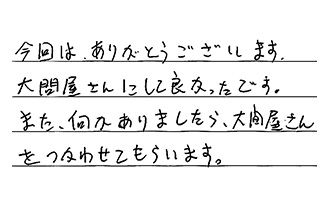 今回は、ありがとうございます.
大問屋さんにして良かったです。
また、何かありましたら、大問屋さん
をつかわせてもらいます。